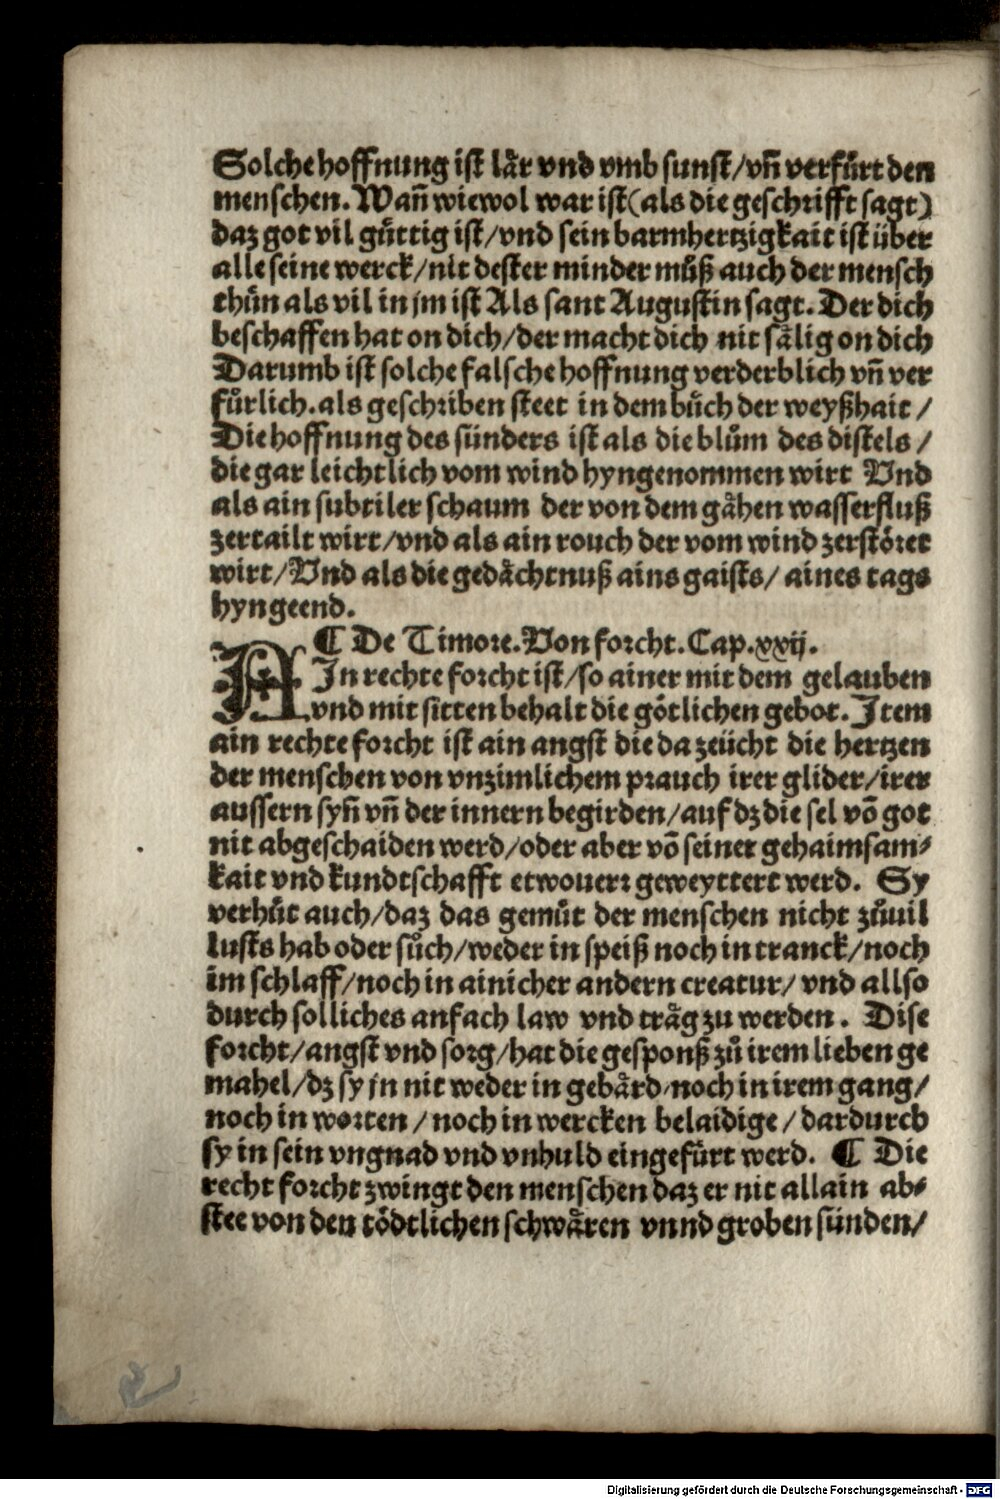 Solche hoffnung ist lår vnd vmb sunst/vñ verfůrt den
menschen. Wañ wiewol war ist(als die geschrifft sagt)
daz got vil gůttig ist/vnd sein barmhertzigkait ist über
alle seine werck/nit dester minder můß auch der mensch
thůn als vil in jm ist Als sant Augustin sagt. Der dich
beschaffen hat on dich/der macht dich nit sålig on dich
Darumb ist solche falsche hoffnung verderblich vñ ver
fůrlich. als geschriben steet in dem bůch der weyßhait /
Die hoffnung des sünders ist als die blům des distels /
die gar leichtlich vom wind hyngenommen wirt Vnd
als ain subtiler schaum der von dem gåhen wasserfluß
zertailt wirt/vnd als ain rouch der vom wind zerstöret
wirt/Vnd als die gedåchtnuß ains gaists/ aines tags
hyngeend.
¶ De Timore. Von forcht. Cap. xxij.
AIn rechte forcht ist/so ainer mit dem gelauben
vnd mit sitten behalt die götlichen gebot. Item
ain rechte forcht ist ain angst die da zeücht die hertzen
der menschen von vnzimlichem prauch irer glider/irer
aussern syñ vñ der innern begirden/auf dz die sel võ got
nit abgeschaiden werd/oder aber võ seiner gehaimsam⸗
kait vnd kundtschafft etwouerr geweyttert werd. Sy
verhůt auch/daz das gemůt der menschen nicht zůuil
lusts hab oder sůch/weder in speiß noch in tranck/noch
im schlaff/noch in ainicher andern creatur/ vnd allso
durch solliches anfach law vnd tråg zu werden. Dise
forcht/angst vnd sorg/hat die gesponß zů irem lieben ge
mahel/dz sy jn nit weder in gebård/noch in irem gang/
noch in worten / noch in wercken belaidige / dardurch
sy in sein vngnad vnd vnhuld eingefůrt werd. ¶ Die
recht forcht zwingt den menschen daz er nit allain ab⸗
stee von den tödtlichen schwåren vnnd groben sünden/
Digitalisierung gefördert durch die Deutsche Forschungsgemeinschaft - DFG